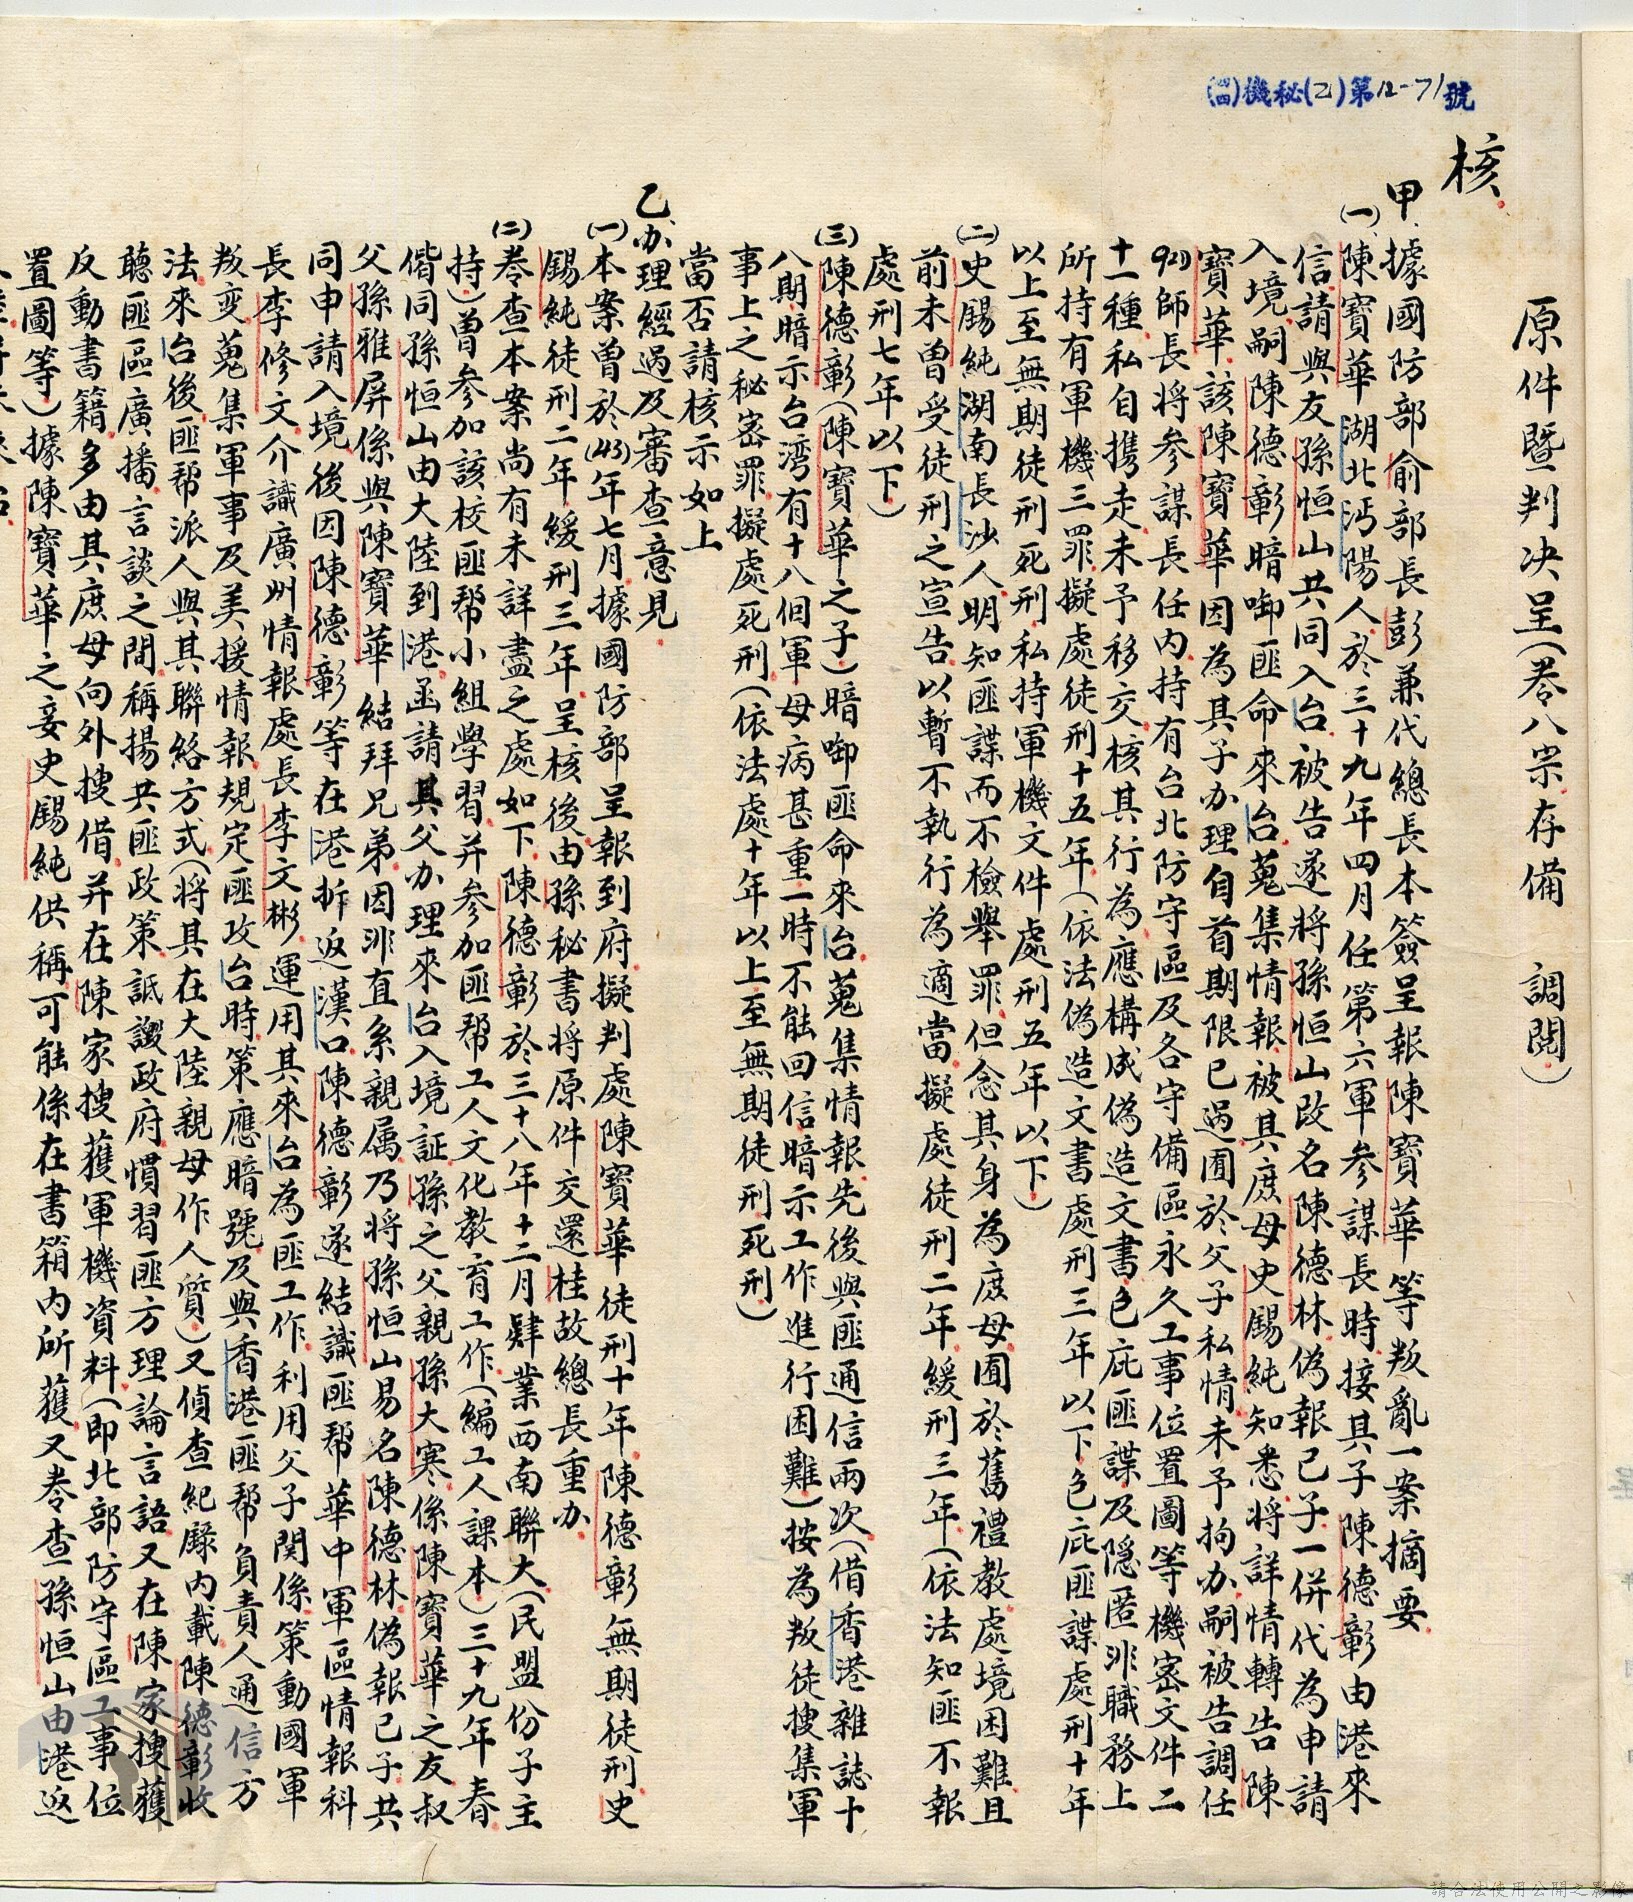 (四)機秘(乙)第12-71號
原件暨判决呈(卷八宗存備　調閱)
核
甲、據國防部俞部長彭兼代總長本簽呈報陳寶華等叛亂一案摘要
(一)陳寶華湖北沔陽人於三十九年四月任第六軍参謀長時接其子陳德彰由港來
信請與友孫恒山共同入台被告遂將孫恒山改名陳德林偽報己子一併代為申請
入境嗣陳德彰暗啣匪命來台蒐集情報被其庶母史賜純知悉將詳情轉告陳
寶華該陳寶華因為其子办理自首期限已過囿於父子私情未予拘办嗣被告調任
921師長將参謀長任内持有台北防守區及各守備區永久工事位置圖等機密文件二
十一種私自携走未予移交核其行為應構成偽造文書包庇匪諜及隠匿非職務上
所持有軍機三罪擬處徒刑十五年(依法偽造文書處刑三年以下包庇匪諜處刑十年
以上至無期徒刑死刑私持軍機文件處刑五年以下)
(二)史賜純湖南長沙人明知匪諜而不檢舉罪但念其身為庶母囿於舊禮教處境困難且
前未曾受徒刑之宣告以暫不執行為適當擬處徒刑二年緩刑三年(依法知匪不報
處刑七年以下)
(三)陳德彰(陳寶華之子)暗啣匪命來台蒐集情報先後與匪通信兩次(借香港雜誌十
八期暗示台湾有十八個軍母病甚重一時不能回信暗示工作進行困難)按為叛徒搜集軍
事上之秘密罪擬處死刑(依法處十年以上至無期徒刑死刑)
當否請核示如上
乙、办理經過及審查意見
(一)本案曾於(43)年七月據國防部呈報到府擬判處陳寶華徒刑十年陳德彰無期徒刑史
錫純徒刑二年緩刑三年呈核後由孫秘書將原件交還桂故總長重办
(二)卷查本案尚有未詳盡之處如下陳德彰於三十八年十二月肄業西南聯大(民盟份子主
持)曾参加該校匪帮小組學習并参加匪帮工人文化教育工作(編工人課本)三十九年春
偕同孫恒山由大陸到港函請其父办理來台入境証孫之父親孫大寒係陳寶華之友叔
父孫雅屏係與陳寶華結拜兄弟因非直系親属乃將孫恒山易名陳德林偽報己子共
同申請入境後因陳德彰等在港拆返漢口陳德彰遂結識匪帮華中軍區情報科
長李修文介識廣州情報處長李文彬運用其來台為匪工作利用父子関係策動國軍
叛变蒐集軍事及美援情報規定匪攻台時策應暗號及與香港匪帮負責人通信方
法來台後匪帮派人與其聯絡方式(將其在大陸親母作人質)又偵查紀錄内載陳德彰收
聽匪區廣播言談之間稱揚共匪政策詆譭政府慣習匪方理論言語又在陳家搜獲
反動書籍多由其庶母向外搜借并在陳家搜獲軍機資料(即北部防守區工事位
置圖等)據陳寶華之妾史賜純供稱可能係在書箱内所獲又卷查孫恒山由港返